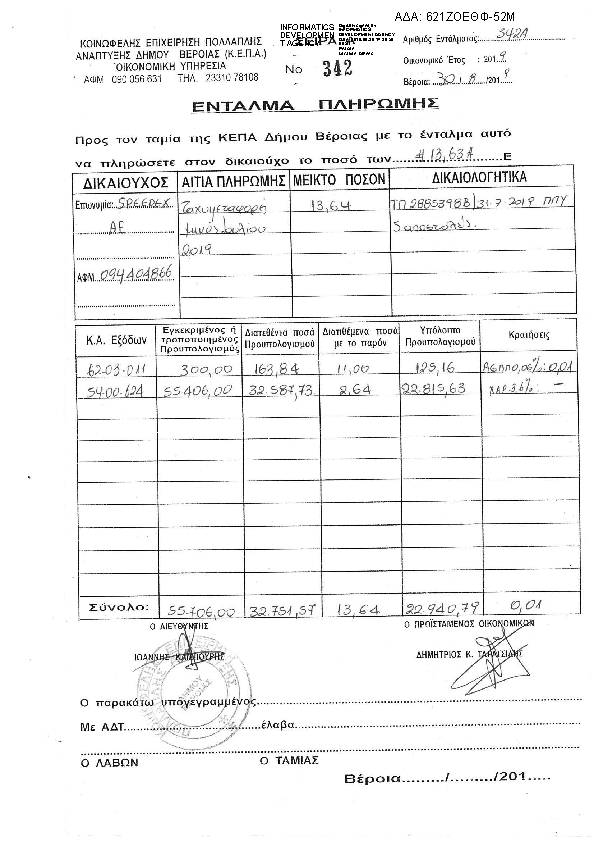 ΑΔΑ: 621ΖΟΕΘΦ-52Μ
ΚΟΙΝΩΦΕΛΗΣ ΕΠΙΧΕΙΡΗΣΗ ΠΟΛΛΑΠΛΗΣ
ΑΝΑΠΤΥΞΗΣ ΔΗΜΟΥ ΒΕΡΟΙΑΣ (Κ.Ε.Π.Α.)
ΟΙΚΟΝΟΜΙΚΗ ΥΠΗΡΕΣΙΑ
ΑΦΜ 090 056 631 ΤΗΛ. 23310 78108
INFORMATICS
DEVELOPMEN
T AGENCY
No 342
Αριθμός Εντάλματος: 342Α
Οικονομικό Έτος : 2019
Βέροια: 30/8/2019
ΕΝΤΑΛΜΑ ΠΛΗΡΩΜΗΣ
Προς τον ταμία της ΚΕΠΑ Δήμου Βέροιας με το ένταλμα αυτό
να πληρώσετε στον δικαιούχο το ποσό των #13,63# Ε
ΔΙΚΑΙΟΥΧΟΣ ΑΙΤΙΑ ΠΛΗΡΩΜΗΣ ΜΕΙΚΤΟ ΠΟΣΟΝ ΔΙΚΑΙΟΛΟΓΗΤΙΚΑ
Επωνυμία: SPEEDEX Ταχυμεταφορή 13,64 ΤΠ 28853988/31-7-2019 ΠΠΥ
ΑΕ μηνός Ιουλίου 5 αποστολές.
2019
ΑΦΜ: 094404866
Κ.Α. Εξόδων Εγκεκριμένος ή τροποποιημένος Προυπολογισμός Διατεθέντα ποσά Προυπολογισμού Διατιθέμενα ποσά με το παρόν Υπόλοιπο Προυπολογισμού Κρατήσεις
62-03-011 300,00 163,84 11,00 125,16 ΑΕΠΠ 0,06%: 0,01
54-00-624 55.406,00 32.587,73 2,64 22.815,63 3,6%: —
Σύνολο: 55.706,00 32.751,57 13,64 22.940,79 0,01
Ο ΔΙΕΥΘΥΝΤΗΣ Ο ΠΡΟΪΣΤΑΜΕΝΟΣ ΟΙΚΟΝΟΜΙΚΩΝ
ΙΩΑΝΝΗΣ ΔΗΜΗΤΡΙΟΣ Κ.
Ο παρακάτω υπογεγραμμένος
Με ΑΔΤ έλαβα
Ο ΛΑΒΩΝ Ο ΤΑΜΙΑΣ
Βέροια........./........./201.....